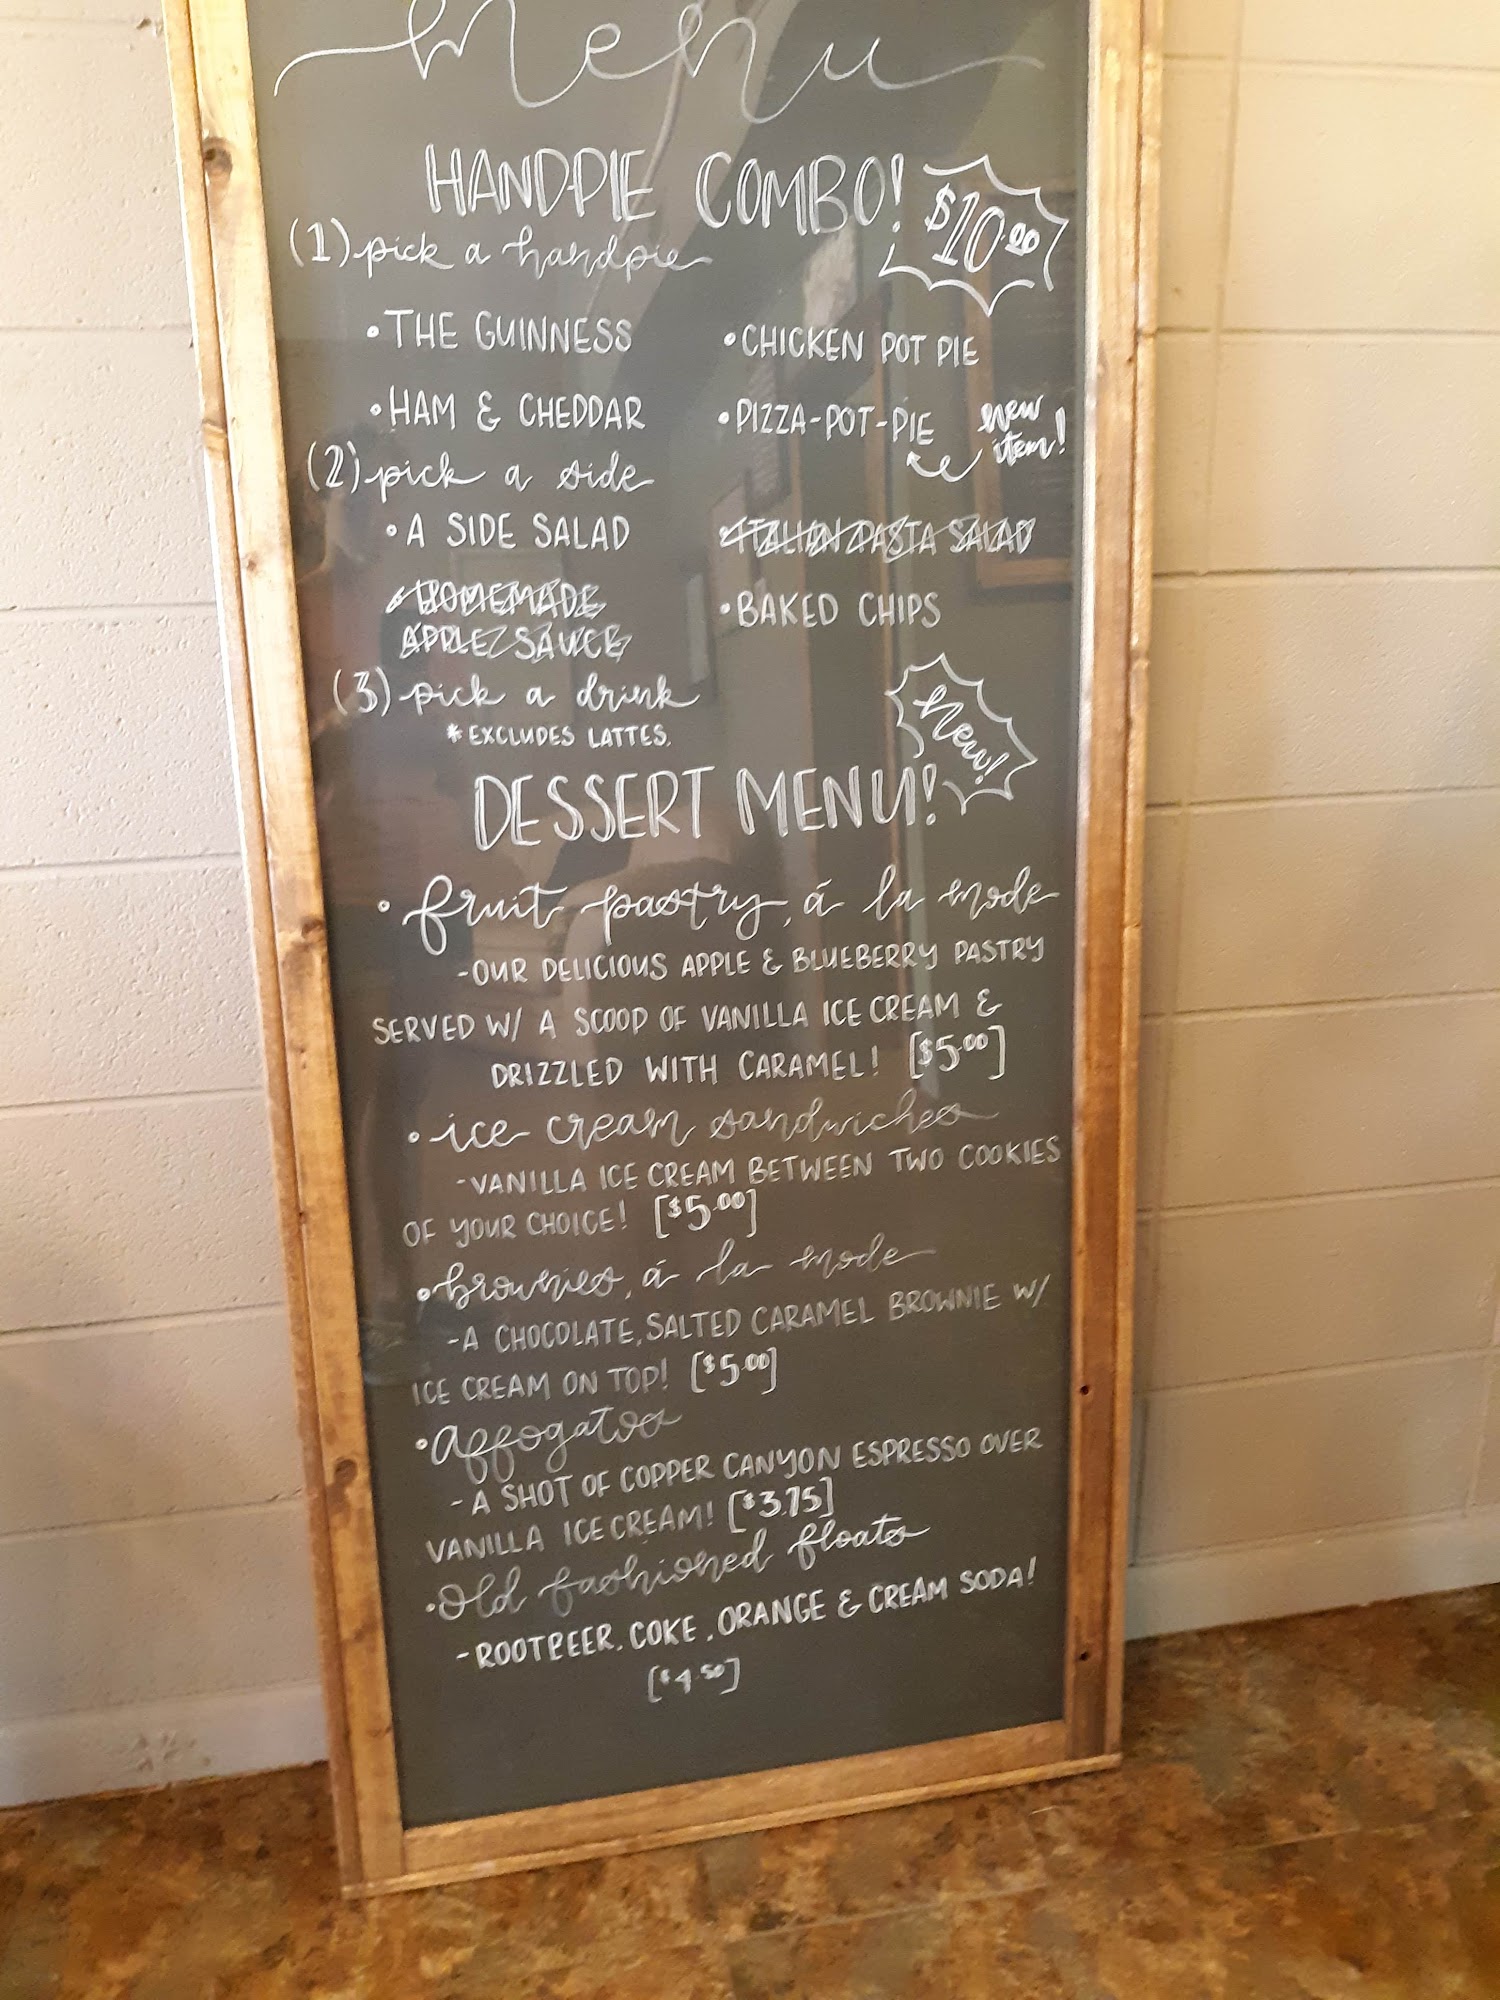 menu
HANDPIE COMBO! $10.00
(1) pick a handpie
•THE GUINNESS •CHICKEN POT PIE
•HAM & CHEDDAR •PIZZA-POT-PIE new item!
(2) pick a side
•A SIDE SALAD •ITALIAN PASTA SALAD
•HOMEMADE •BAKED CHIPS
APPLE SAUCE
(3) pick a drink
*EXCLUDES LATTES.
New!
DESSERT MENU!
•fruit pastry, á la mode
-OUR DELICIOUS APPLE & BLUEBERRY PASTRY
SERVED W/ A SCOOP OF VANILLA ICE CREAM &
DRIZZLED WITH CARAMEL! [$5.00]
•ice cream sandwiches
-VANILLA ICE CREAM BETWEEN TWO COOKIES
OF YOUR CHOICE! [$5.00]
•brownies, á la mode
-A CHOCOLATE, SALTED CARAMEL BROWNIE W/
ICE CREAM ON TOP! [$5.00]
•affogatos
-A SHOT OF COPPER CANYON ESPRESSO OVER
VANILLA ICE CREAM! [$3.75]
•Old fashioned floats
-ROOTBEER, COKE, ORANGE & CREAM SODA!
[$4.50]